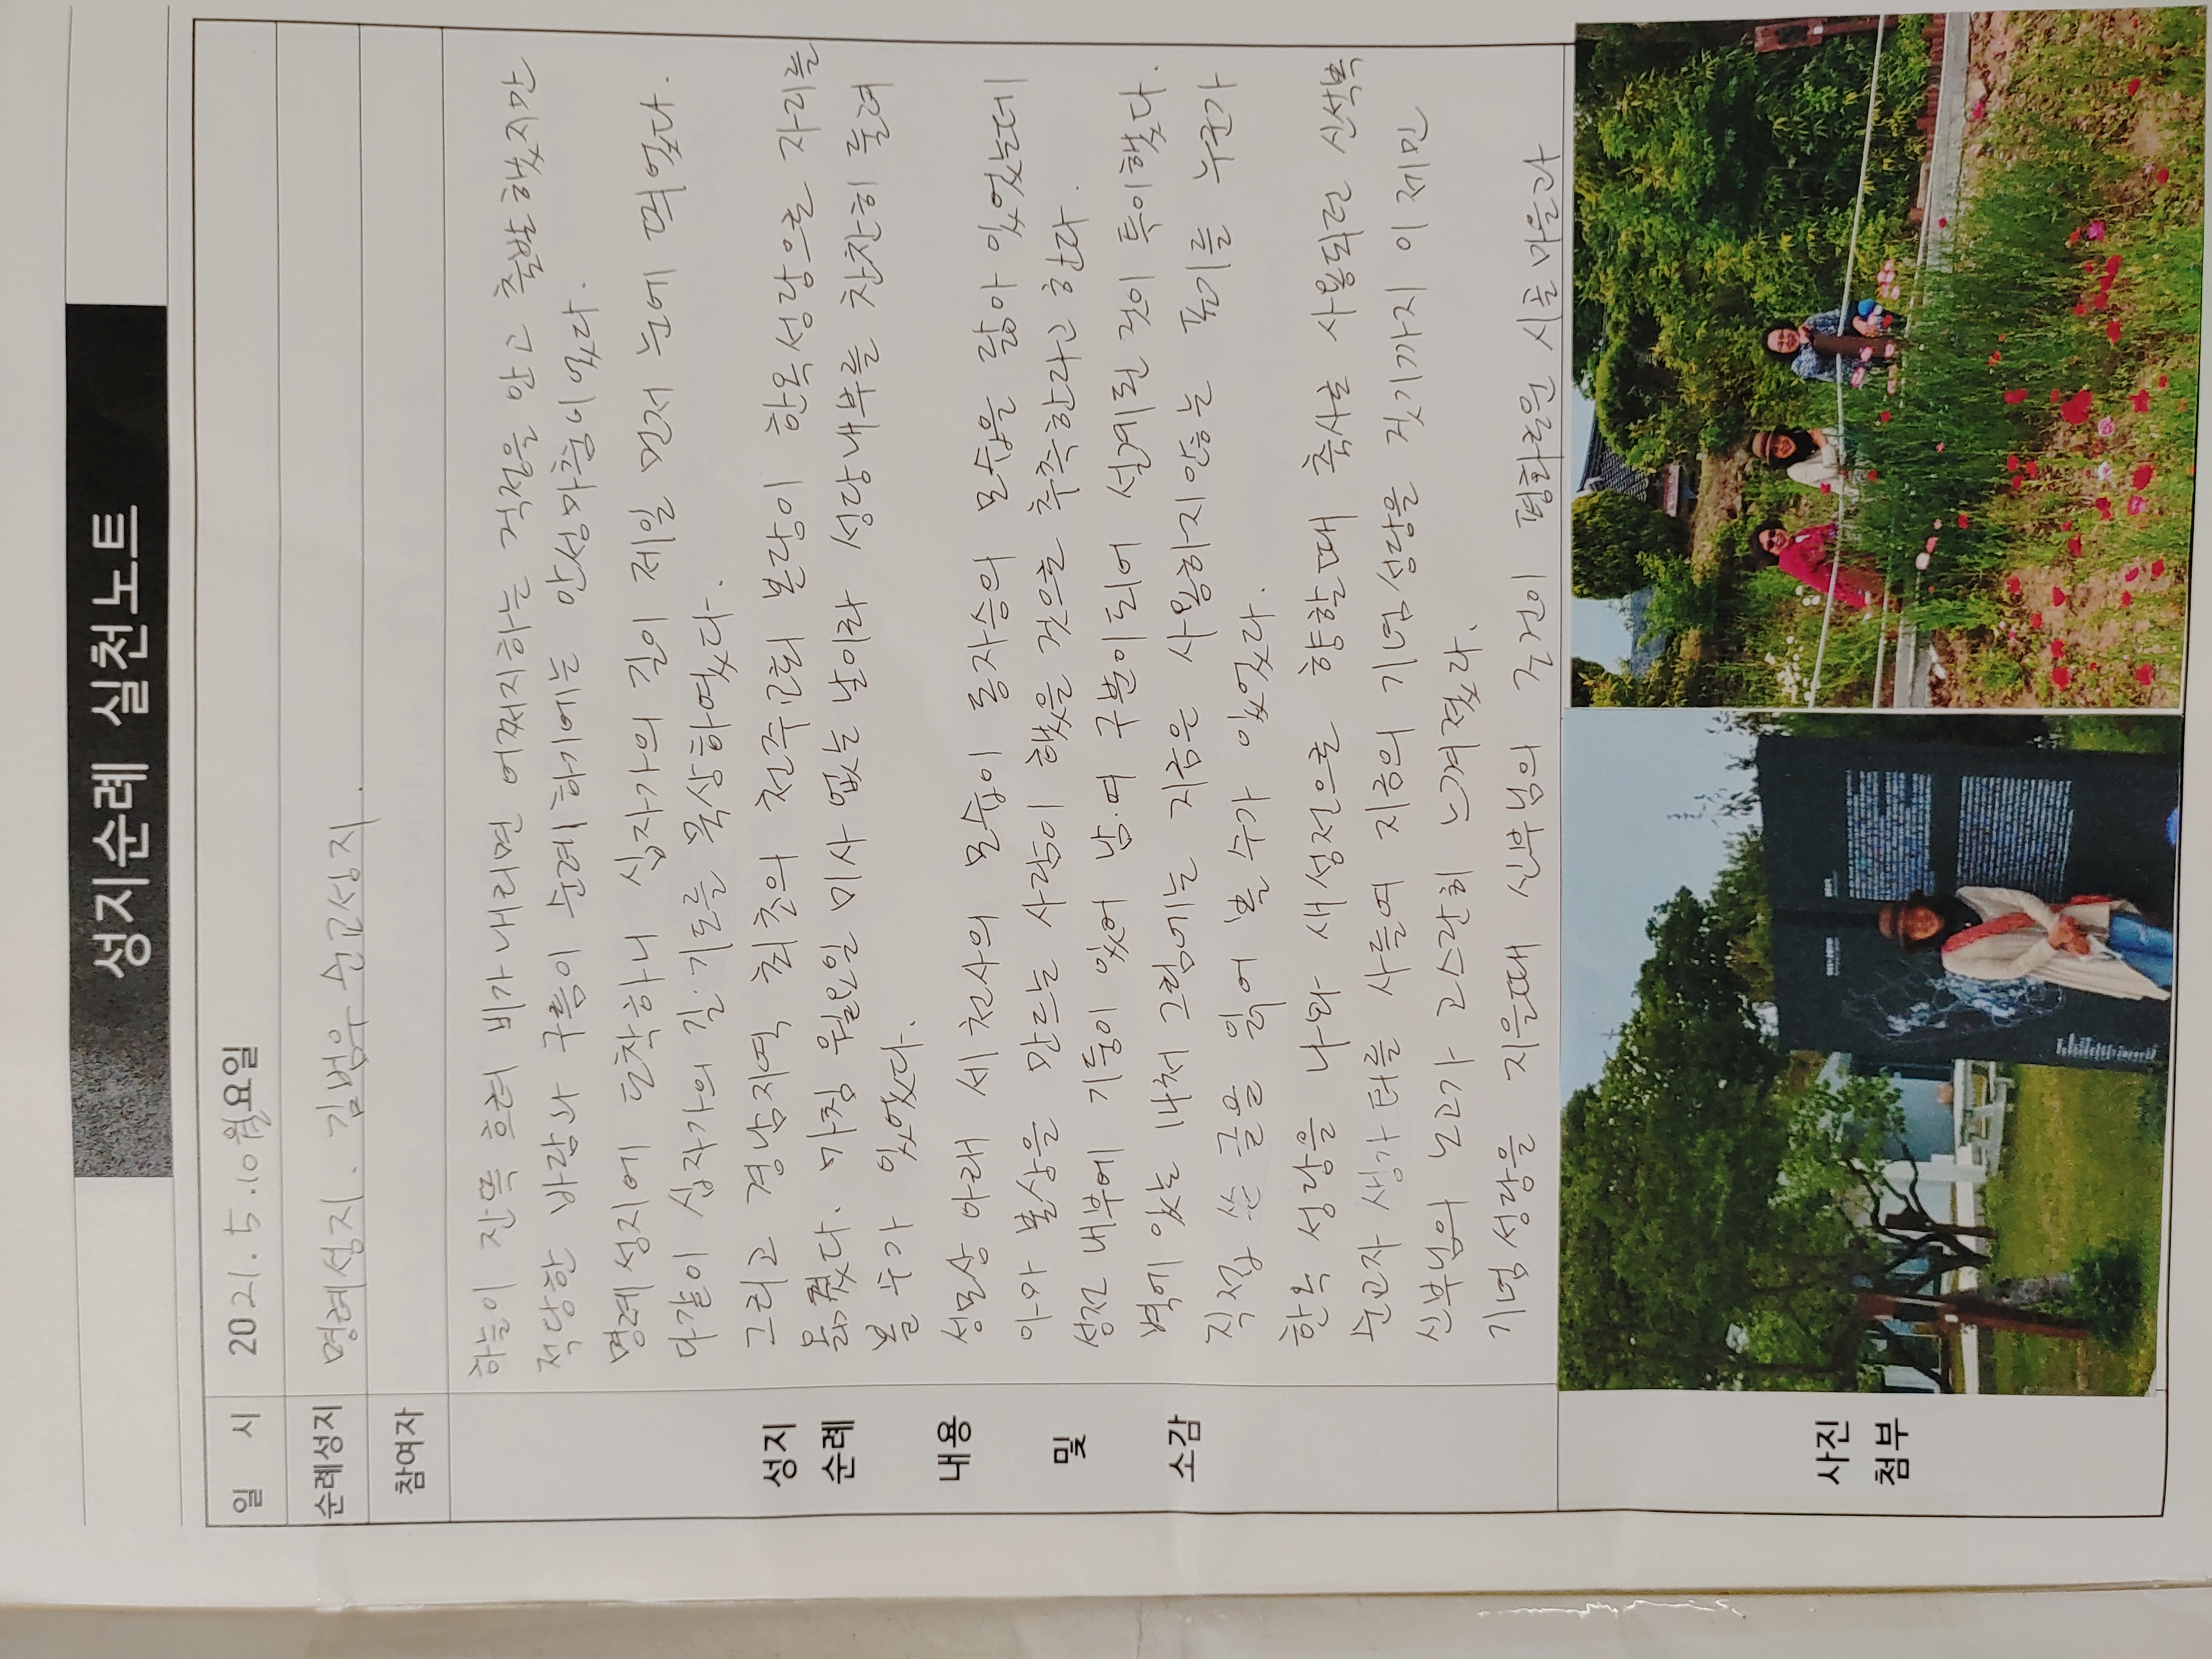 성지순례 실천노트
일 시 2021. 5. 10 월요일
순례성지 명례성지. 김범우 순교성지.
참여자
성지
순례
내용
및
소감
하늘이 잔뜩 흐려 비가 내리면 어쩌지하는 걱정을 안고 출발했지만
적당한 바람과 구름이 순례하기에는 안성마춤이었다.
명례성지에 도착하니 십자가의 길이 제일 먼저 눈에 띄었다.
다같이 십자가의 길·기도를 묵상하였다.
그리고 경남지역 최초의 천주교회 본당이 한옥성당으로 자리를
옮겼다. 마침 월요일 미사 없는 날이라 성당내부를 찬찬히 둘려
볼 수가 있었다.
성모상 아래 세 천사의 모습이 동자승의 모습을 닮아 있었는데
아마 불상을 만드는 사람이 했을 것으로 추측한다라고 한다.
성전 내부에 기둥이 있어 남.여 구분이되어 설계된 것이 특이했다.
벽에 있는 나처 그림에는 지금은 사용하지않는 표기를 누군가
직접 쓴 글을 읽어 볼 수가 있었다.
한옥 성당을 나와 새성전으로 향할때 축사로 사용되던 신석복
순교자 생가터를 사들여 지금의 기념성당을 짓기까지 이제민
신부님의 노고가 고스란히 느껴졌다.
기념성당을 지을때 신부님의 조건이 평화로운 시골마을과
사진
첨부